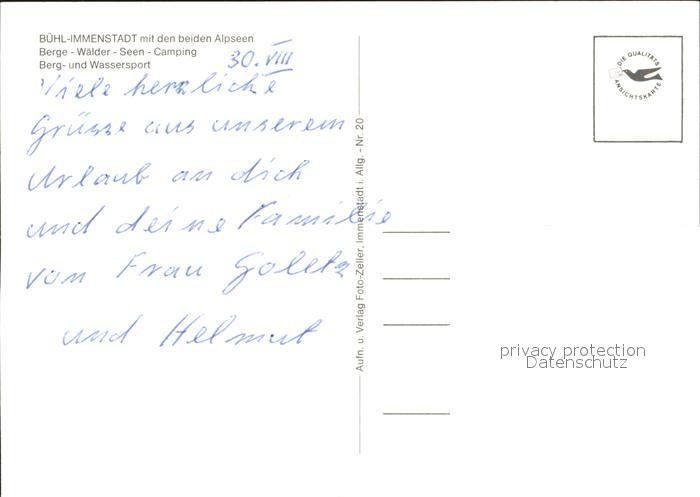 BÜHL-IMMENSTADT mit den beiden Alpseen
Berge - Wälder - Seen - Camping
Berg- und Wassersport
30. VIII
Viele herzliche
Grüsse aus unserem
Urlaub an dich
und deine Familie
von Frau Goletz
und Helmut
Aufn. u. Verlag Foto-Zeller, Immenstadt i. Allg. - Nr. 20
DIE QUALITÄTS
ANSICHTSKARTE
privacy protection
Datenschutz